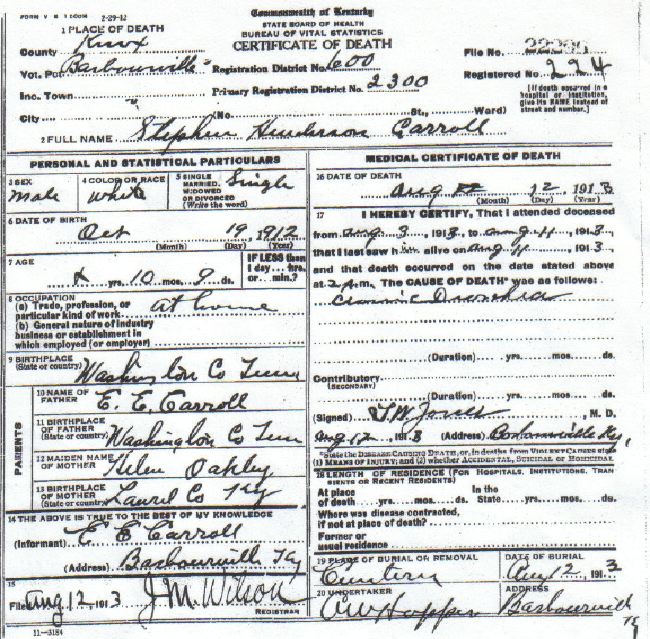 FORM V. S. 2-29-12
Commonwealth of Kentucky
STATE BOARD OF HEALTH
BUREAU OF VITAL STATISTICS
CERTIFICATE OF DEATH
1 PLACE OF DEATH
County Knox
Vot. Pct. Barbourville
Registration District No. 600
File No.
Inc. Town
Primary Registration District No. 2300
Registered No. 224
City (No. St., Ward)
[If death occurred in a hospital or institution, give its NAME instead of street and number.]
2 FULL NAME Stephen Henderson Carroll
PERSONAL AND STATISTICAL PARTICULARS
3 SEX male
4 COLOR OR RACE white
5 SINGLE MARRIED, WIDOWED OR DIVORCED (Write the word) Single
6 DATE OF BIRTH
Oct 19, 1912
(Month) (Day) (Year)
7 AGE
yrs. 10 mos. 9 ds.
IF LESS than 1 day... hrs. or... min.?
8 OCCUPATION
(a) Trade, profession, or particular kind of work at home
(b) General nature of industry business or establishment in which employed (or employer)
9 BIRTHPLACE
(State or country) Washington Co Tenn
PARENTS
10 NAME OF FATHER E. E. Carroll
11 BIRTHPLACE OF FATHER (State or country) Washington Co Tenn
12 MAIDEN NAME OF MOTHER Helen Oakley
13 BIRTHPLACE OF MOTHER (State or country) Laurel Co Ky
14 THE ABOVE IS TRUE TO THE BEST OF MY KNOWLEDGE
(Informant) E E Carroll
(Address) Barbourville Ky
15
Filed Aug 12, 1913 J. M. Wilson
REGISTRAR
11-3184
MEDICAL CERTIFICATE OF DEATH
16 DATE OF DEATH
Aug 12, 1913
(Month) (Day) (Year)
17 I HEREBY CERTIFY, That I attended deceased
from Aug 3, 1913, to Aug 11, 1913,
that I last saw him alive on Aug 11, 1913,
and that death occurred on the date stated above
at 2 P.m. The CAUSE OF DEATH* was as follows:
(Duration) yrs. mos. ds.
Contributory
(SECONDARY)
(Duration) yrs. mos. ds.
(Signed) Jones, M. D.
Aug 12, 1913 (Address) Barbourville Ky,
*State the DISEASE CAUSING DEATH, or, in deaths from VIOLENT CAUSES state
(1) MEANS OF INJURY; and (2) whether ACCIDENTAL, SUICIDAL or HOMICIDAL
18 LENGTH OF RESIDENCE (FOR HOSPITALS, INSTITUTIONS, TRANSIENTS OR RECENT RESIDENTS)
At place of death yrs. mos. ds. In the State yrs. mos. ds.
Where was disease contracted, if not at place of death?
Former or usual residence
19 PLACE OF BURIAL OR REMOVAL
DATE OF BURIAL
Aug 12, 1913
20 UNDERTAKER
ADDRESS
Hopper Barbourville Ky